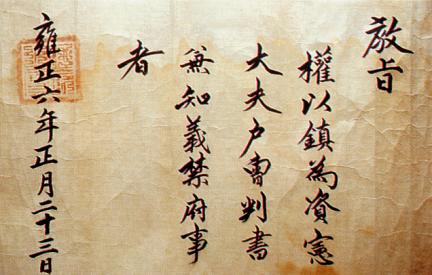 敎旨
權以鎮為資憲
大夫户曺判書
兼知義禁府事
者
雍正六年正月二十三日